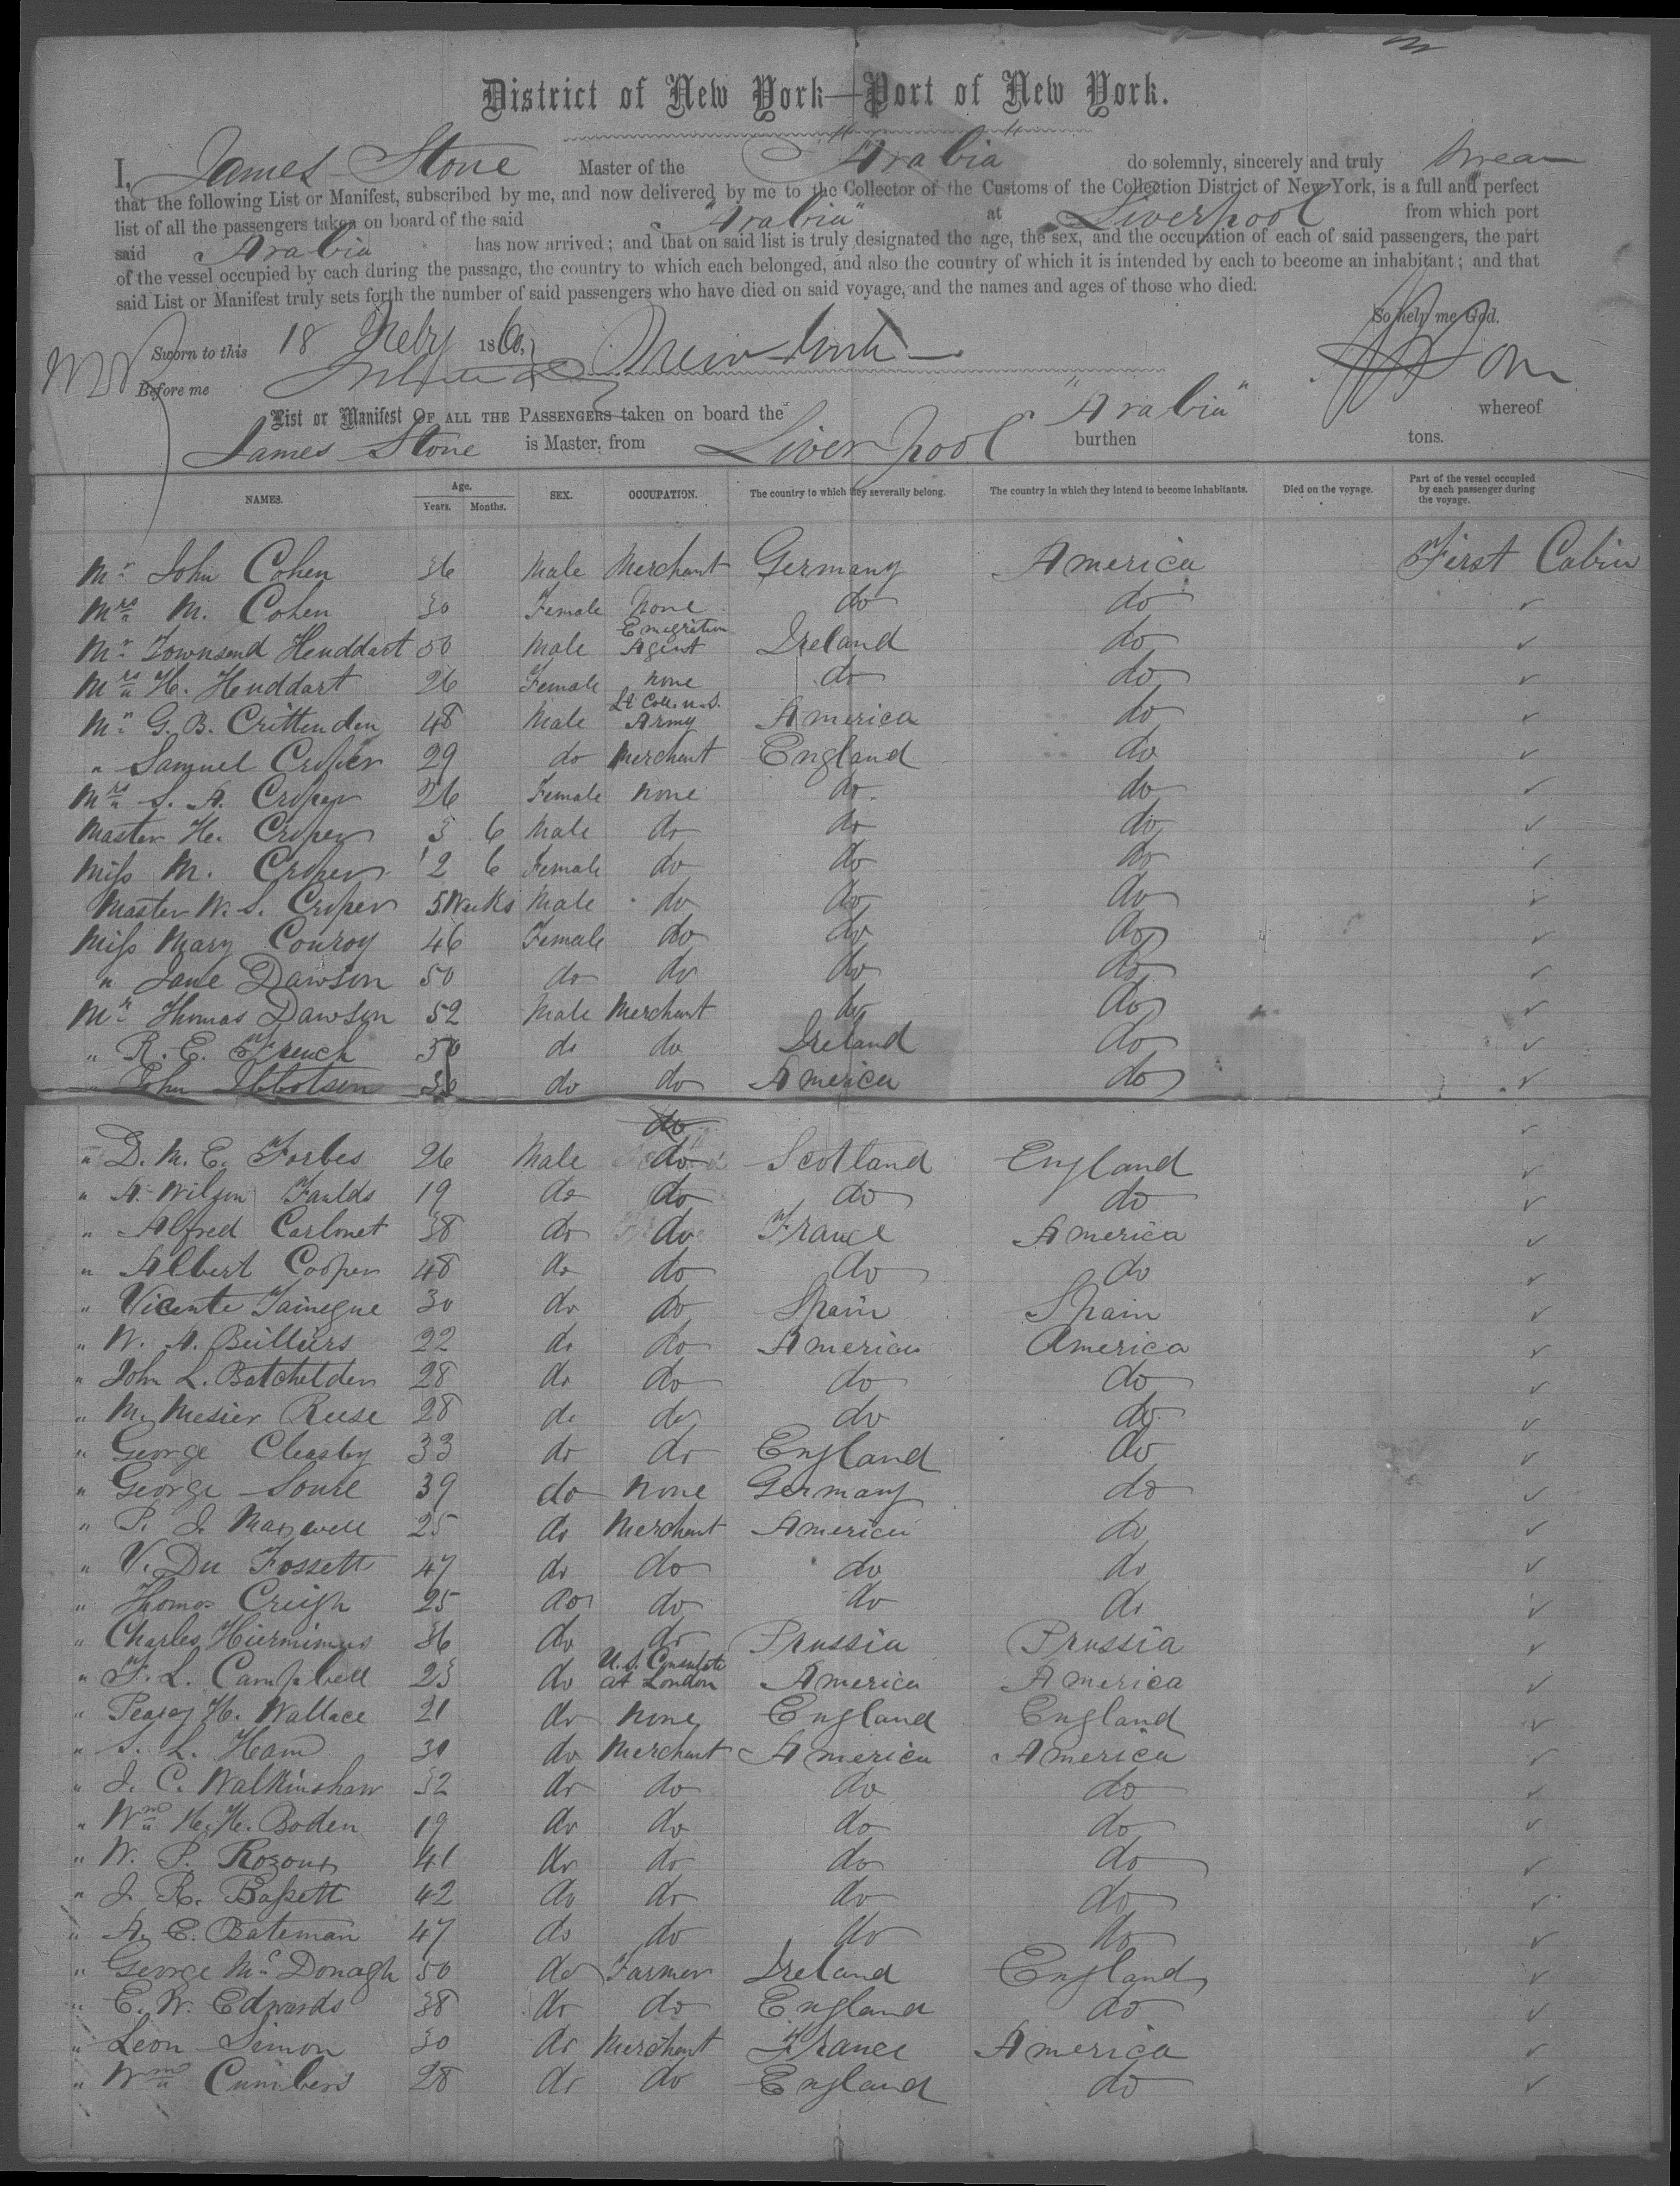 District of New York—Port of New York.
I, James Stone Master of the "Arabia" do solemnly, sincerely and truly swear
that the following List or Manifest, subscribed by me, and now delivered by me to the Collector of the Customs of the Collection District of New York, is a full and perfect
list of all the passengers taken on board of the said "Arabia" at Liverpool from which port
said Arabia has now arrived; and that on said list is truly designated the age, the sex, and the occupation of each of said passengers, the part
of the vessel occupied by each during the passage, the country to which each belonged, and also the country of which it is intended by each to become an inhabitant; and that
said List or Manifest truly sets forth the number of said passengers who have died on said voyage, and the names and ages of those who died.
So help me God.
Sworn to this 18 Feby 1860,
Before me
List or Manifest OF ALL THE PASSENGERS taken on board the "Arabia" whereof
James Stone is Master, from Liverpool burthen tons.
NAMES. Age. Years. Months. SEX. OCCUPATION. The country to which they severally belong. The country in which they intend to become inhabitants. Died on the voyage. Part of the vessel occupied by each passenger during the voyage.
Mr John Cohen 36 Male Merchant Germany America First Cabin
Mrs M. Cohen 30 Female None do do ✓
Mr Townsend Huddart 50 Male Emigration Agent Ireland do ✓
Mrs H. Huddart 26 Female None do do ✓
Mr G. B. Crittenden 48 Male Lt Coll. U.S. Army America do ✓
" Samuel Croper 29 do Merchant England do ✓
Mrs S. A. Croper 26 Female None do do ✓
Master H. Croper 3 6 Male do do do ✓
Miss M. Croper 2 6 Female do do do ✓
Master W. S. Croper 5 Weeks Male do do do ✓
Miss Mary Conroy 46 Female do do do ✓
" Jane Dawson 50 do do do do ✓
Mr Thomas Dawson 52 Male Merchant do do ✓
" R. E. French 30 do do Ireland do ✓
" John Ibbotson 30 do do America do ✓
do ✓
" D. M. E. Forbes 26 Male do Scotland England ✓
" A. Wilson Faulds 19 do do do do ✓
" Alfred Carlonet 38 do do France America ✓
" Albert Cooper 48 do do do do ✓
" Vicente 30 do do Spain Spain ✓
" W. A. 22 do do America America ✓
" John L. Batchelder 28 do do do do ✓
" M. Mesier Reese 28 do do do do ✓
" George Cleasby 33 do do England do ✓
" George 39 do None Germany do ✓
" P. J. Maxwell 25 do Merchant America do ✓
" V. Du Fossett 47 do do do do ✓
" Thomas Creigh 25 do do do do ✓
" Charles Hiernimus 36 do do Prussia Prussia ✓
" F. L. Campbell 23 do U.S. Consulate at London America America ✓
" Pearcy H. Wallace 21 do None England England ✓
" S. L. Ham 30 do Merchant America America ✓
" J. C. Walkinshaw 32 do do do do ✓
" Wm H. H. Boden 19 do do do do ✓
" W. P. 41 do do do do ✓
" J. R. Bassett 42 do do do do ✓
" A. E. Bateman 47 do do do do ✓
" George McDonagh 50 do Farmer Ireland England ✓
" E. W. Edwards 38 do do England do ✓
" Leon Simon 30 do Merchant France America ✓
" Wm Cumbers 28 do do England do ✓